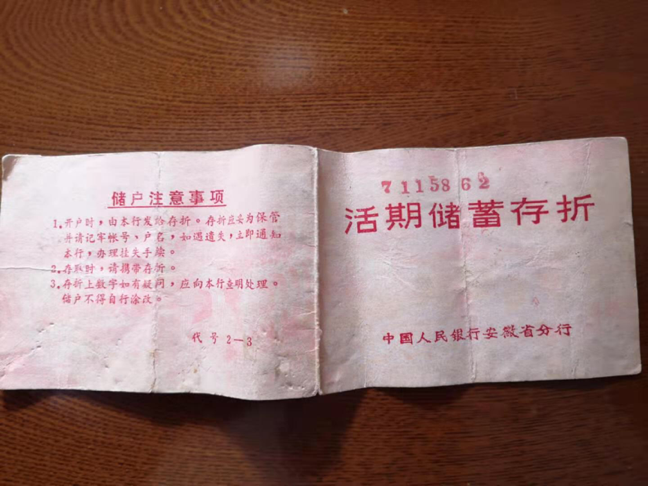 储户注意事项
1.开户时，由本行发给存折。存折应妥为保管
并请记牢帐号、户名，如遇遗失，立即通知
本行，办理挂失手续。
2.存取时，请携带存折。
3.存折上数字如有疑问，应向本行查明处理。
储户不得自行涂改。
代号2—3
7115862
活期储蓄存折
中国人民银行安徽省分行